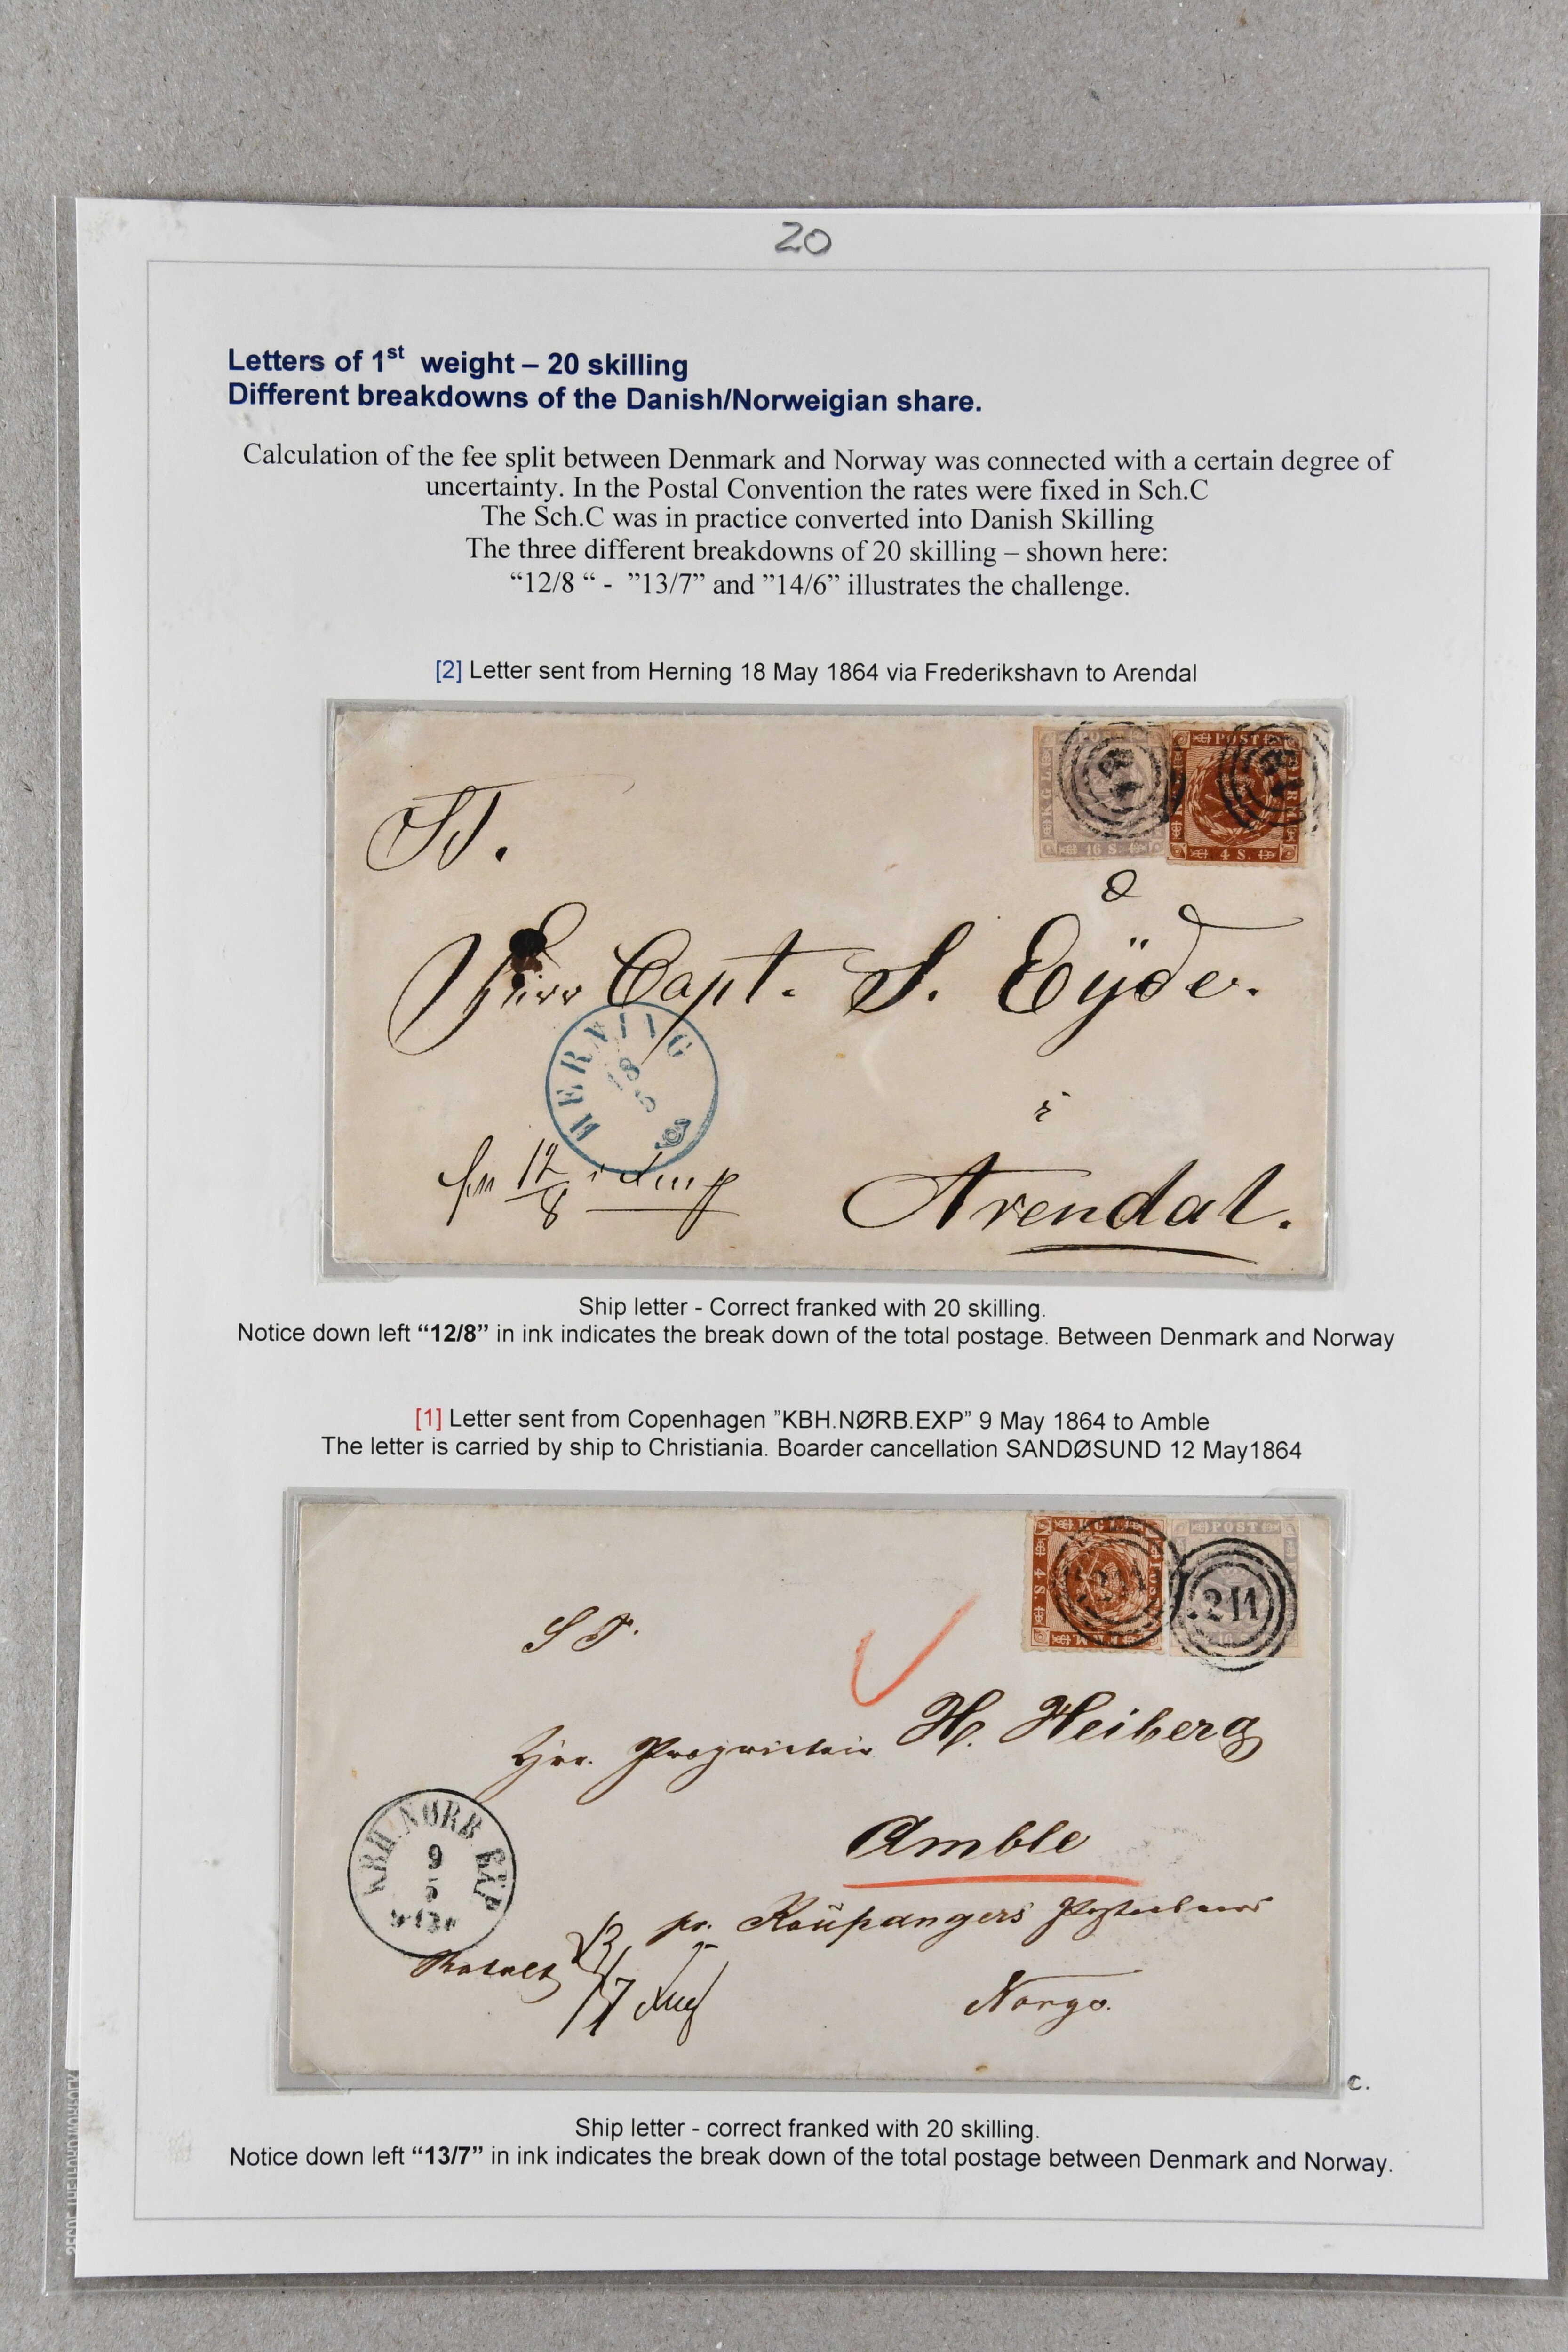 20
Letters of 1st weight – 20 skilling
Different breakdowns of the Danish/Norweigian share.
Calculation of the fee split between Denmark and Norway was connected with a certain degree of
uncertainty. In the Postal Convention the rates were fixed in Sch.C
The Sch.C was in practice converted into Danish Skilling
The three different breakdowns of 20 skilling – shown here:
“12/8 “ - ”13/7” and ”14/6” illustrates the challenge.
[2] Letter sent from Herning 18 May 1864 via Frederikshavn to Arendal
16 S.
POST
4 S.
ST.
Herr Capt. S. Eÿde.
HERNING
18
5
i
12/8
Arendal.
Ship letter - Correct franked with 20 skilling.
Notice down left “12/8” in ink indicates the break down of the total postage. Between Denmark and Norway
[1] Letter sent from Copenhagen ”KBH.NØRB.EXP” 9 May 1864 to Amble
The letter is carried by ship to Christiania. Boarder cancellation SANDØSUND 12 May1864
KGL
4 S.
POST
211
ST.
Hrr. Proprietair H. Heiberg
Amble
KBH. NØRB. EXP
9
5
pr. Kaupangers
Betalt 13/7
Norge.
c.
Ship letter - correct franked with 20 skilling.
Notice down left “13/7” in ink indicates the break down of the total postage between Denmark and Norway.